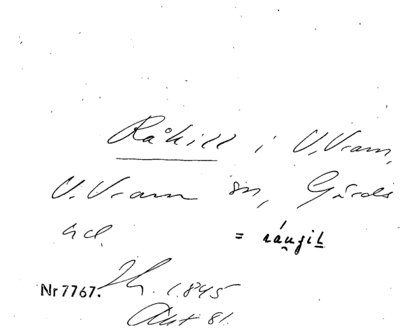 Råkill i V. Vram,
V. Vram sn, Gärds
hd. = ráu̯giḷ
Nr 7767. Ih. 1.845
Akt 81.